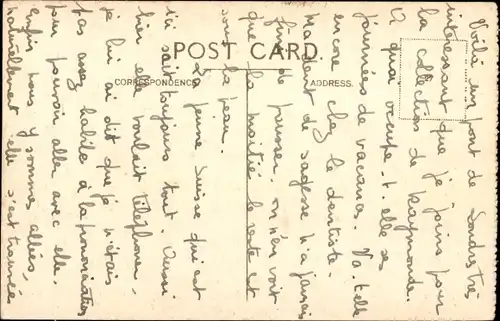 POST CARD
CORRESPONDENCE
ADDRESS.
Voilà un pont de Londres très
intéressant que je joins pour
la collection de Raymonde.
A quoi occupe-t-elle ses
journées de vacances. Va-t-elle
encore chez le dentiste.
Ma dent de sagesse n'a jamais
fini de pousser, on n'en voit
que la moitié le reste est
sous la peau.
La jeune Suisse qui est
ici sait toujours tout. Aussi
hier elle voulait téléphoner,
je lui ai dit que je n'étais
pas assez habile à la prononciation
pour pouvoir aller avec elle.
enfin nous y sommes allées,
naturellement elle s'est trouvée